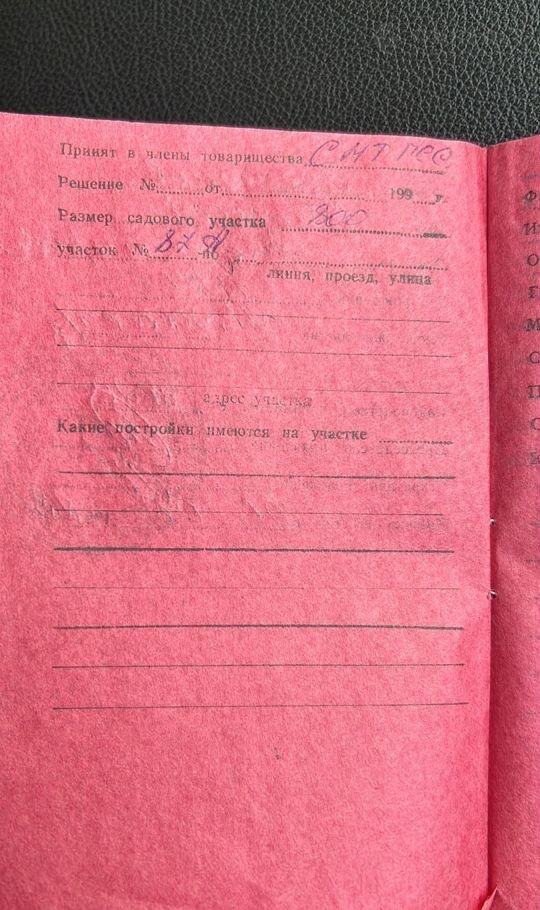 Принят в члены товарищества СНТ ПСО
Решение № от 199 г.
Размер садового участка 800
участок № 87 по
линия, проезд, улица
адрес участка
Какие постройки имеются на участке